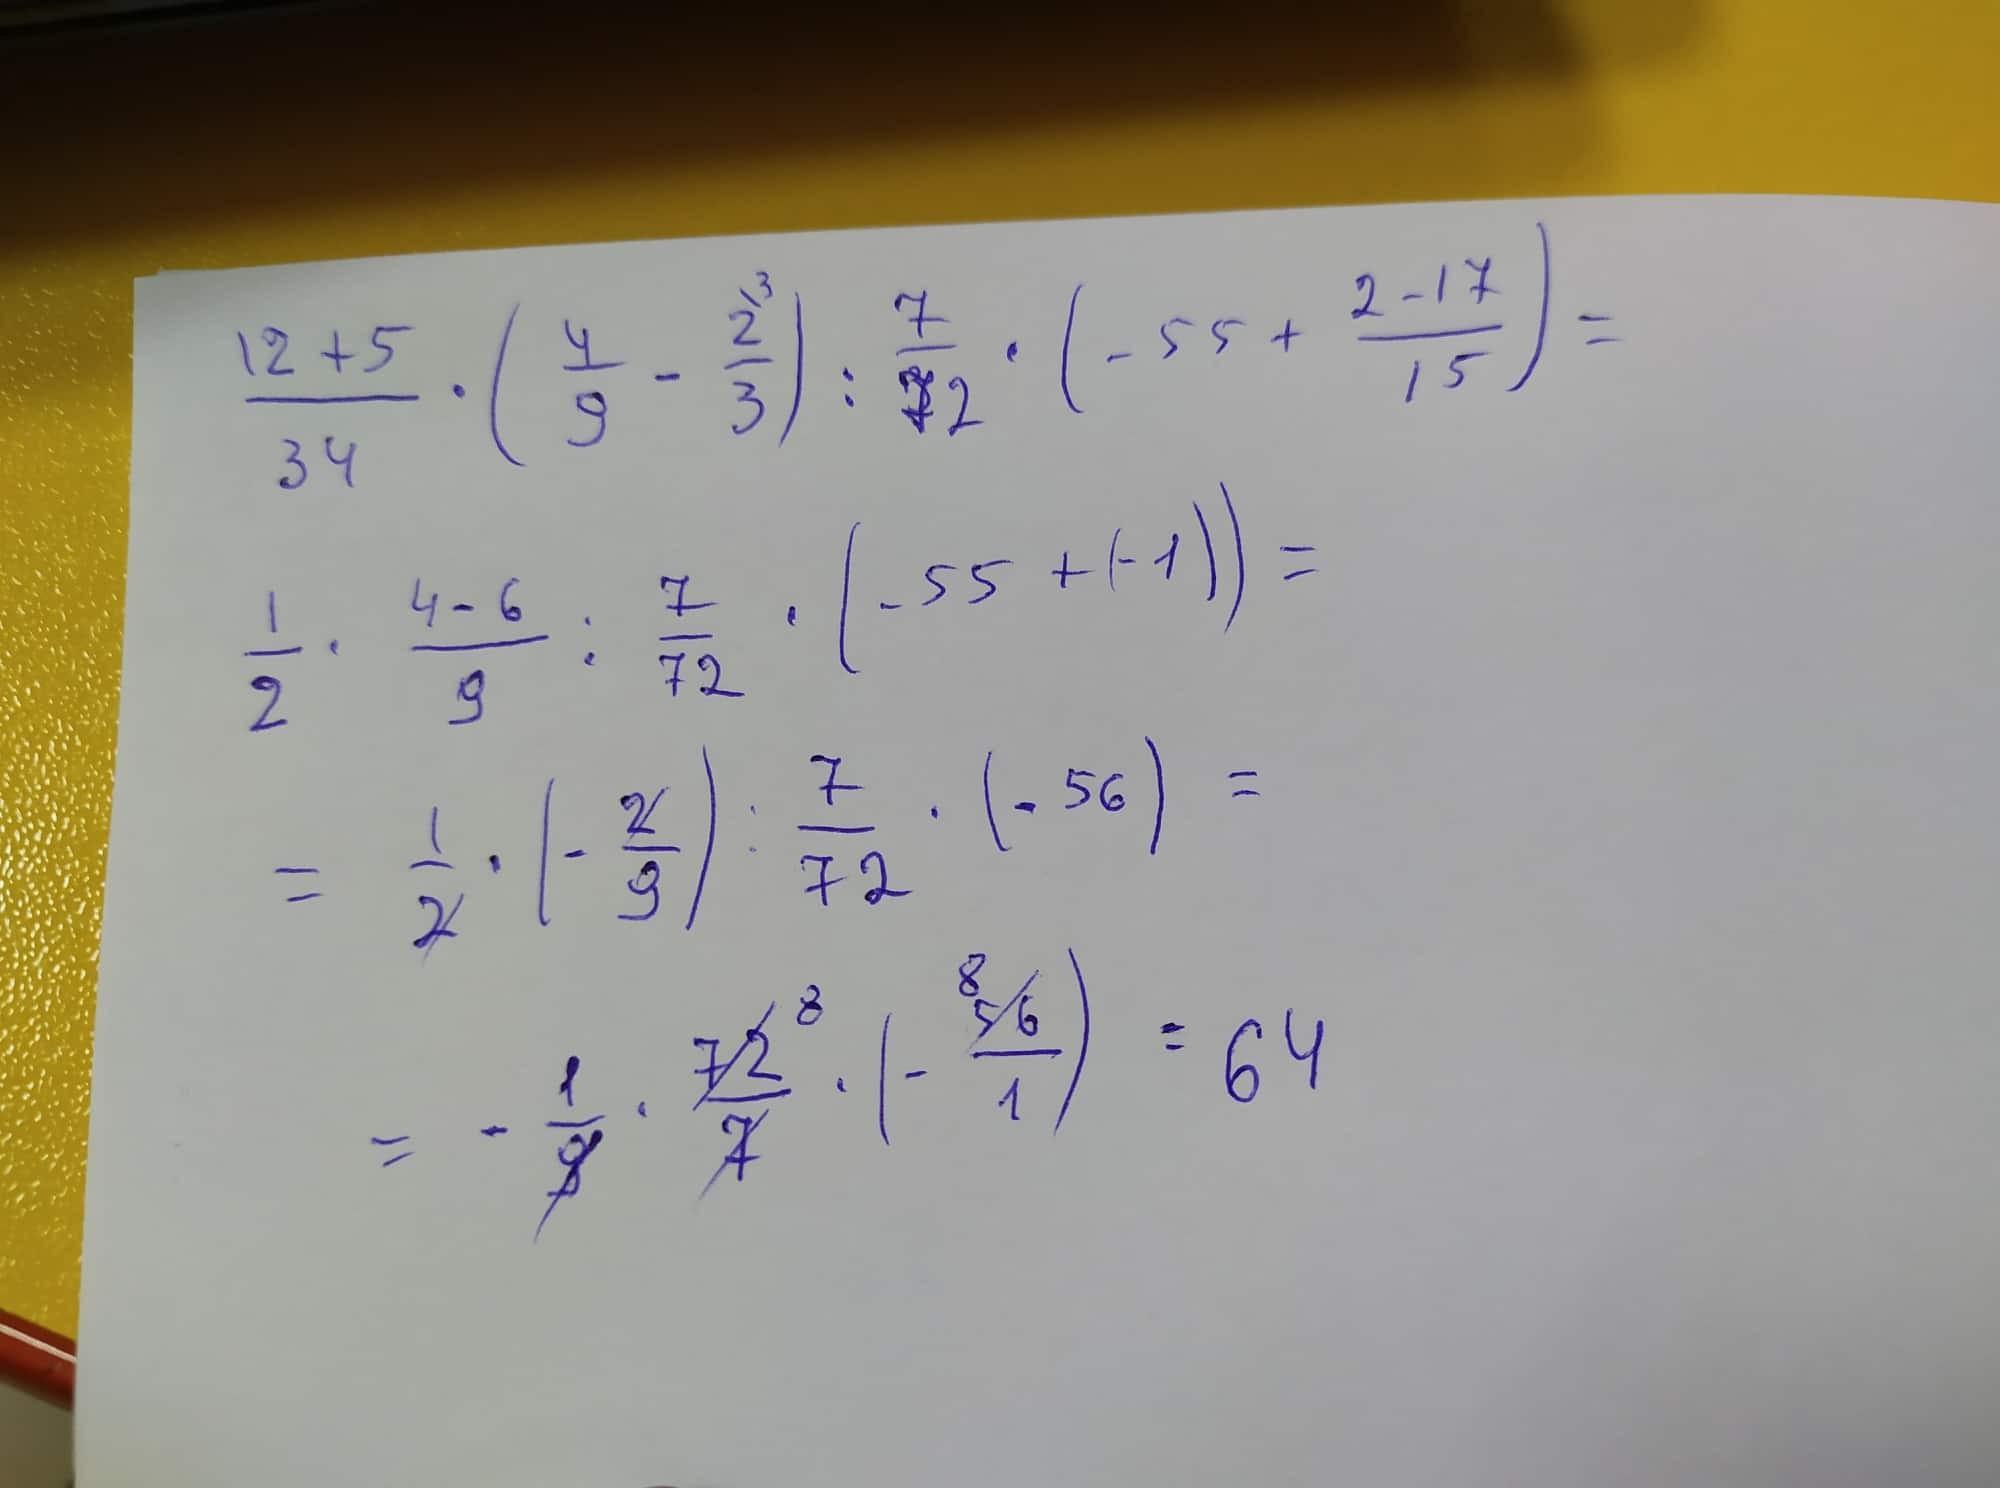 12+5/34 · (4/9 - 2\3/3) : 7/72 · (-55 + 2-17/15) =
1/2 · 4-6/9 : 7/72 · (-55 + (-1)) =
= 1/2 · (-2/9) : 7/72 · (-56) =
= - 1/9 · 72 8/7 · (- 8 56/1) = 64